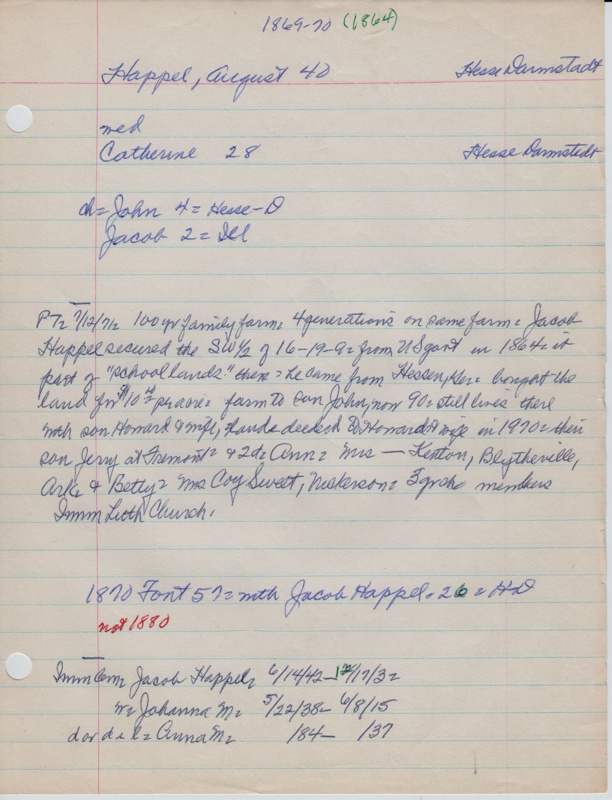 1869-70 (1864)
Happel, August 40 Hesse Darmstadt
med
Catherine 28 Hesse Darmstedt
ch= John 4= Hesse-D
Jacob 2= Ill
PT= 7/12/72 100 yr family farm= 4 generations on same farm= Jacob
Happel secured the SW½ of 16-19-9= from US govt in 1864= it
part of "school lands" there= he came from Hessen, Ger= bought the
land for $10 per acre= farm to son John, now 90= still lives there
with son Howard & wife, & lands deeded to Howard & wife in 1970= their
son Jerry at Fremont= & 2d= Ann= Mrs — Kenton, Blytheville,
Ark= & Betty= Mrs Coy Sweet, Nickerson= 3 grch= members
Imm Luth Church.
1870 Font 57= with Jacob Happel= 26= HD
not 1880
Imm Cem= Jacob Happel= 6/14/42- 12/17/32
w= Johanna M= 5/22/38- 6/8/15
d or d-i-l= Anna M= /84- /37